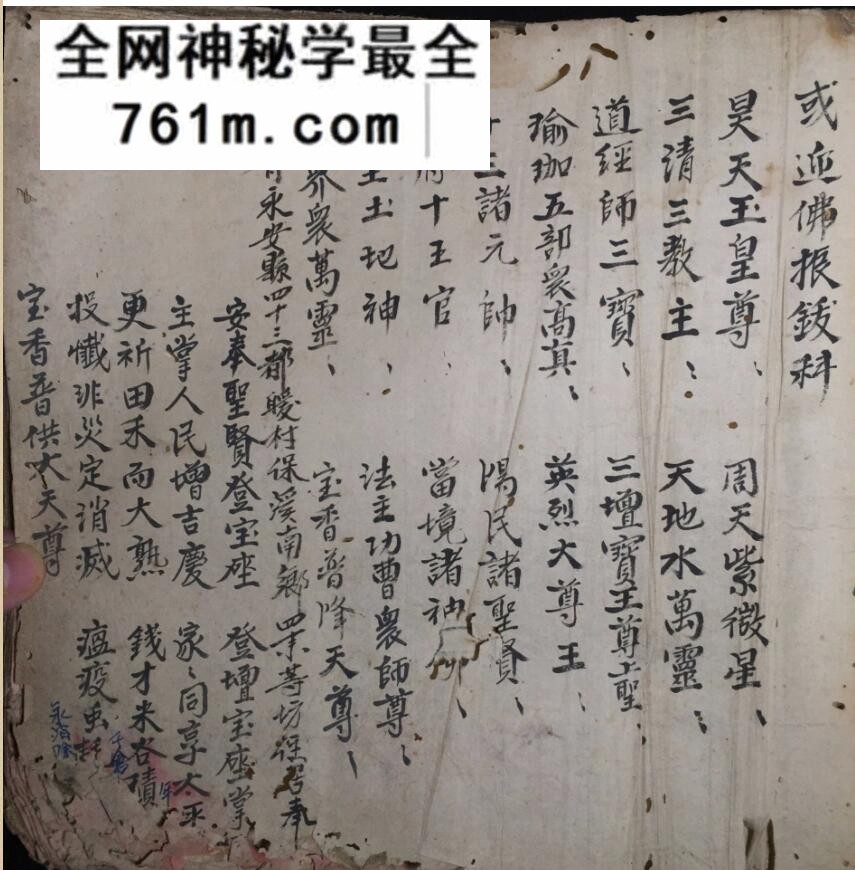 全网神秘学最全
761m.com
或迎佛振鈸科
昊天玉皇尊、 周天紫微星、
三清三教主、 天地水萬靈、
道經師三寶、 三壇寶王尊上聖、
瑜珈五部衆高真、 英烈大尊王、
三諸元帥、 陽民諸聖賢、
十王官、 當境諸神
土地神、 法主功曹衆師尊、
界衆萬靈、 宝香普降天尊、
永安縣四十三都暖村保溪南鄉 等坊 居奉
安奉聖賢登宝座 登壇宝座掌
主掌人民增吉慶 家、同享太平
更祈田禾而大熟 錢才米谷積 年
投懺非災定消滅 瘟疫虫
宝香普供大天尊